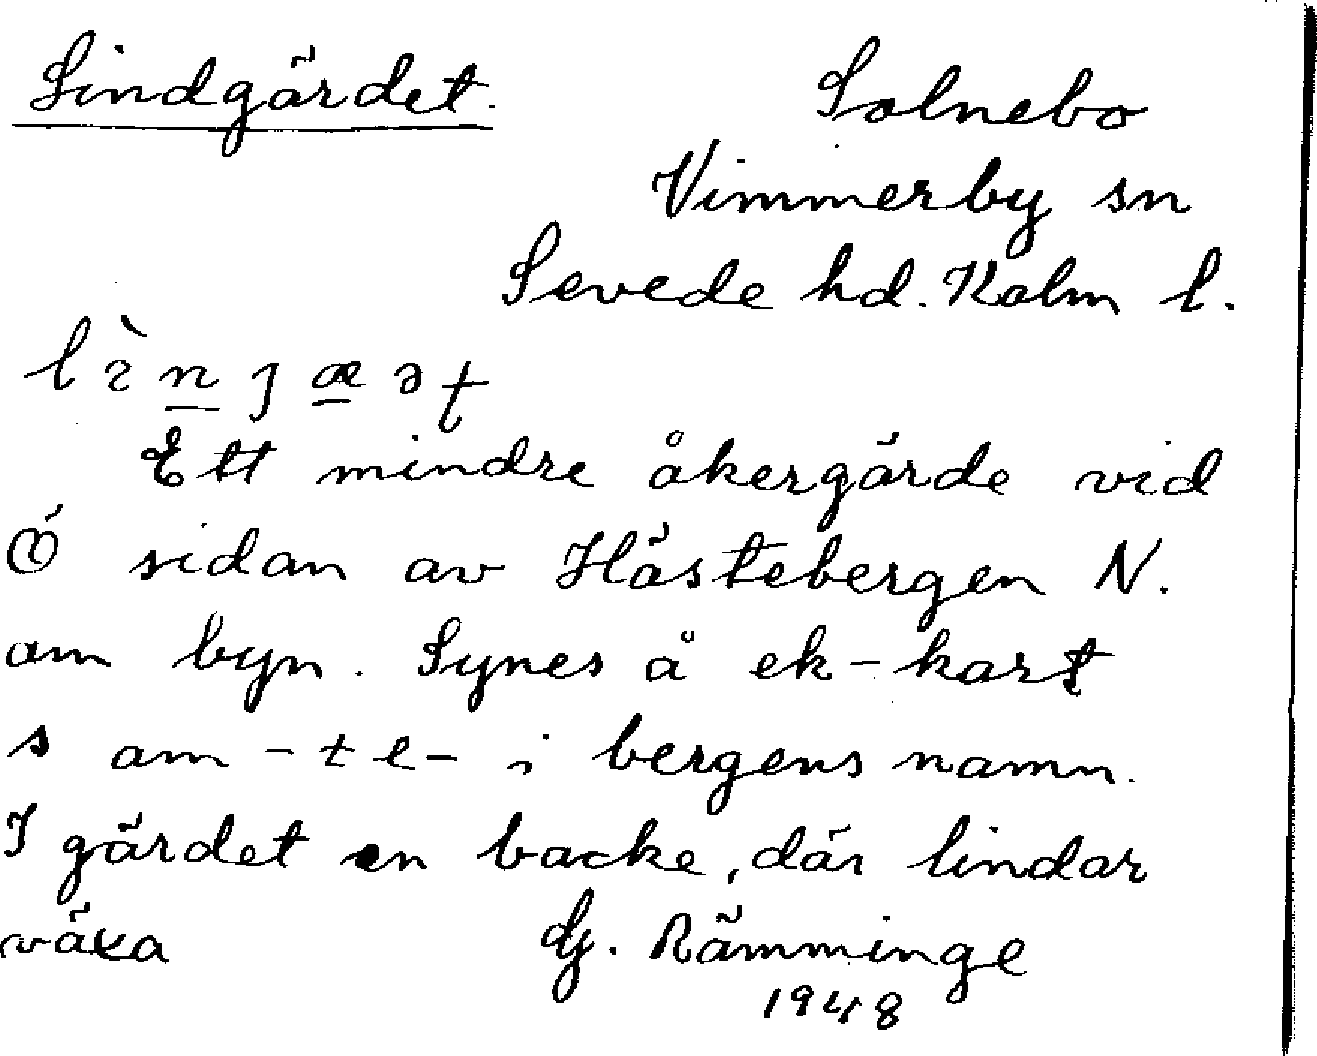 Lindgärdet.
Solnebo
Vimmerby sn
Sevede hd. Kalm l.
Ett mindre åkergärde vid
Ö sidan av Hästebergen N.
om byn. Synes å ek-kart
s om -te- i bergens namn.
I gärdet en backe, där lindar
växa
G. Rämminge
1948